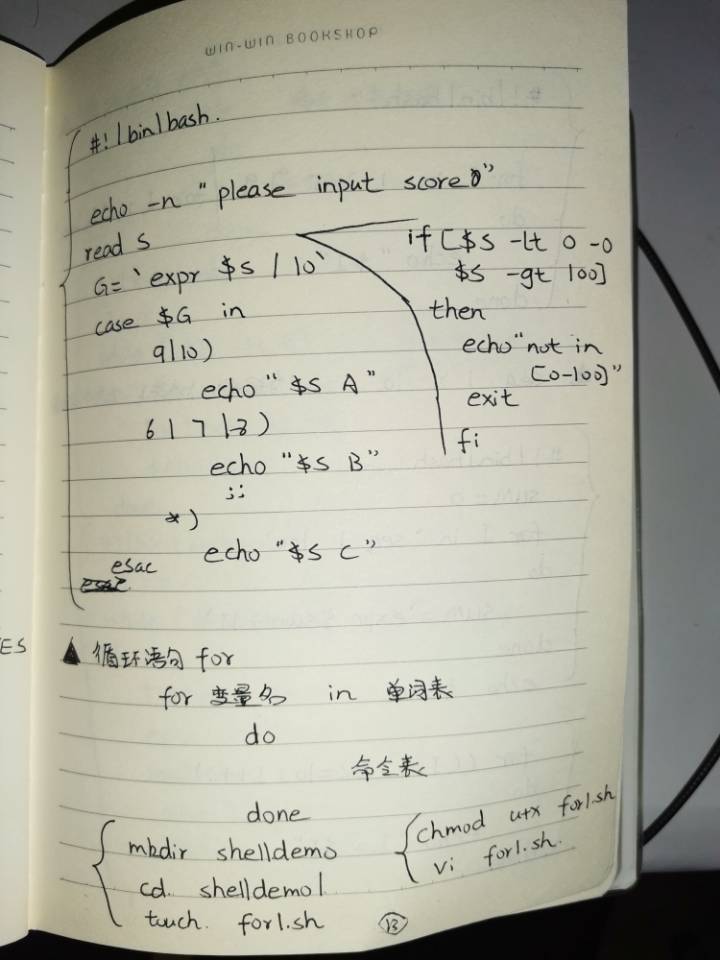 WIN-WIN BOOKSHOP
#!/bin/bash.
echo -n "please input score:"
read s
G=`expr $s / 10`
case $G in
9|10)
echo "$s A"
6|7|8)
echo "$s B"
;;
*)
echo "$s C"
esac
if [$s -lt 0 -o
$s -gt 100]
then
echo "not in
[0-100]"
exit
fi
ES
▲ 循环语句 for
for 变量名 in 单词表
do
命令表
done
mkdir shelldemo
cd. shelldemo/
touch. for1.sh
chmod u+x for1.sh
vi for1.sh.
13